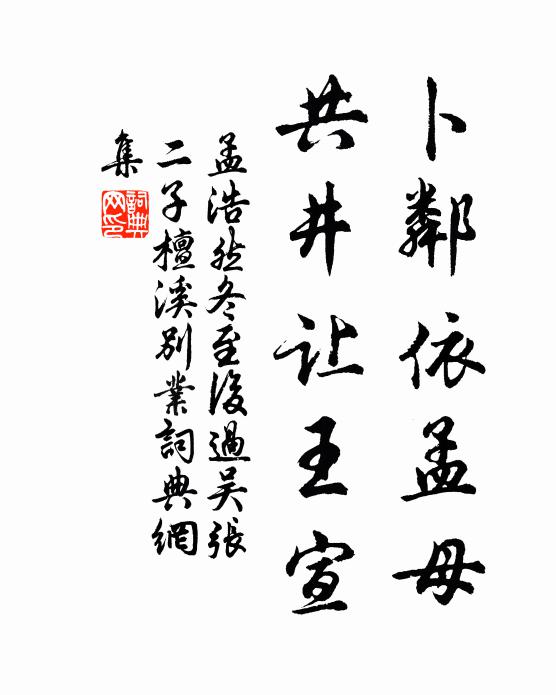 卜鄰依孟母
共井让王宣
孟浩然冬至後過吳張
二子檀溪別業詞典網
集
詞典
网印